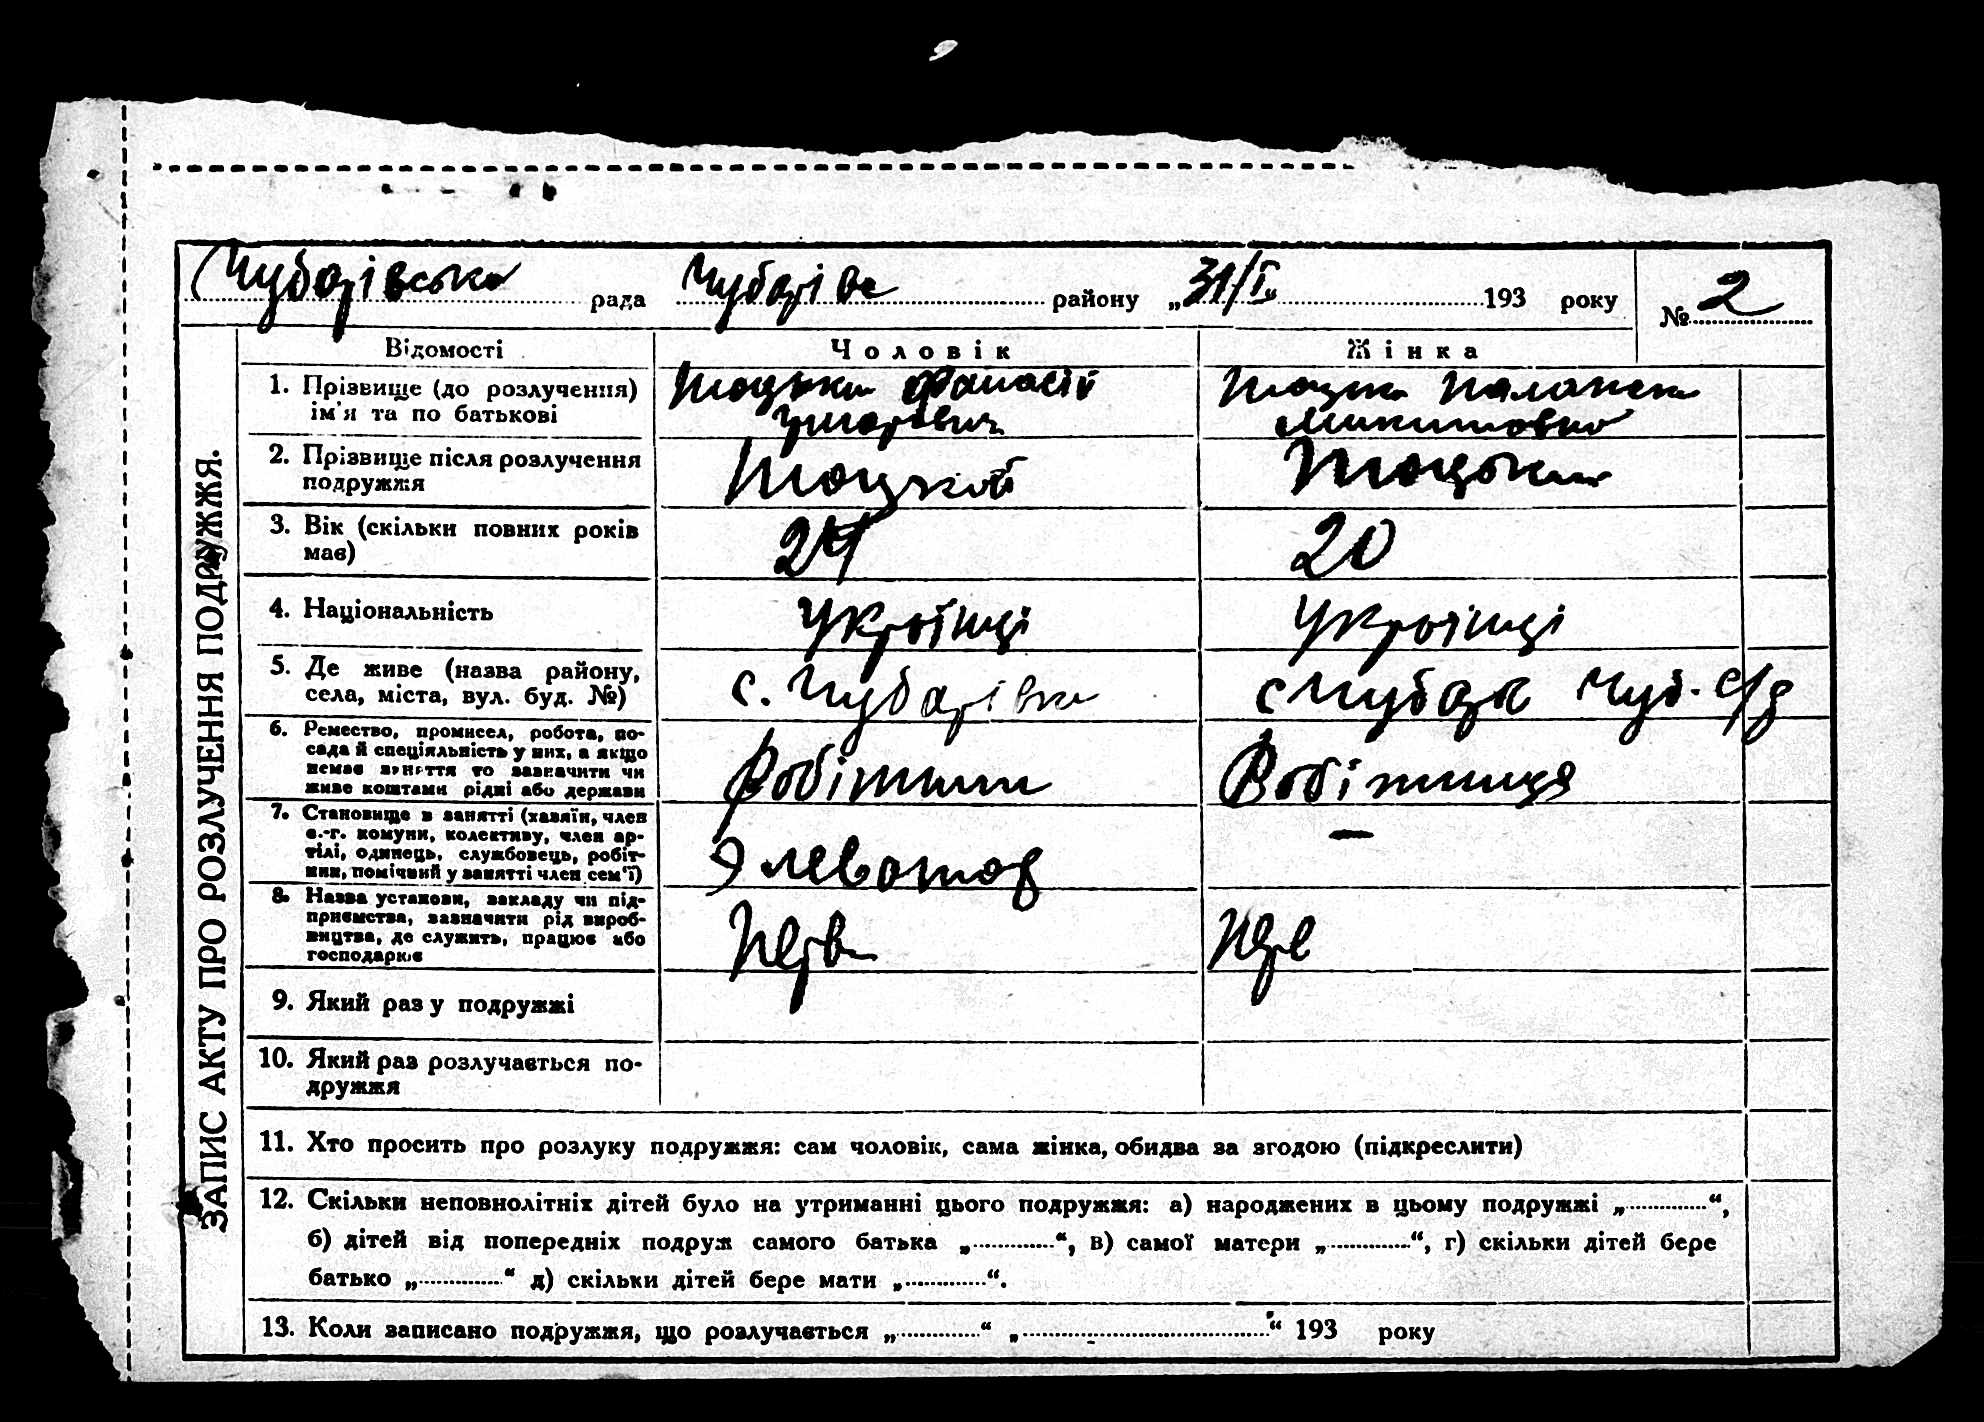 Чубарівська рада Чубарівс району „31/I“ 193 року № 2
ЗАПИС АКТУ ПРО РОЗЛУЧЕННЯ ПОДРУЖЖЯ.
Відомості Чоловік Жінка
1. Прізвище (до розлучення) ім'я та по батькові
Тоцьки Фанасій
Григорович
Тоцька Палажка
Микитовна
2. Прізвище після розлучення подружжя
Тоцький
3. Вік (скільки повних років має)
24
20
4. Національність
Українці
Українці
5. Де живе (назва району, села, міста, вул. буд. №)
с. Чубарівка
с Чубарь Чуб. с/р
6. Ремество, промисел, робота, по-
сада й спеціяльність у них, а якщо
немає заняття то зазначити чи
живе коштами рідні або держави
Робітник
Робітниця
7. Становище в занятті (хазяїн, член
с.-г. комуни, колективу, член ар-
тілі, одинець, службовець, робіт-
ник, помічний у занятті член сем'ї)
Элеватор
—
8. Назва установи, закладу чи під-
приємства, зазначити рід вироб-
ництва, де служить, працює або
господарює
Перв
Пер
9. Який раз у подружжі
10. Який раз розлучається по-
дружжя
11. Хто просить про розлуку подружжя: сам чоловік, сама жінка, обидва за згодою (підкреслити)
12. Скільки неповнолітніх дітей було на утриманні цього подружжя: а) народжених в цьому подружжі „............“,
б) дітей від попередніх подруж самого батька „............“, в) самої матери „............“, г) скільки дітей бере
батько „............“ д) скільки дітей бере мати „............“.
13. Коли записано подружжя, що розлучається „............“ „....................................“ 193 року